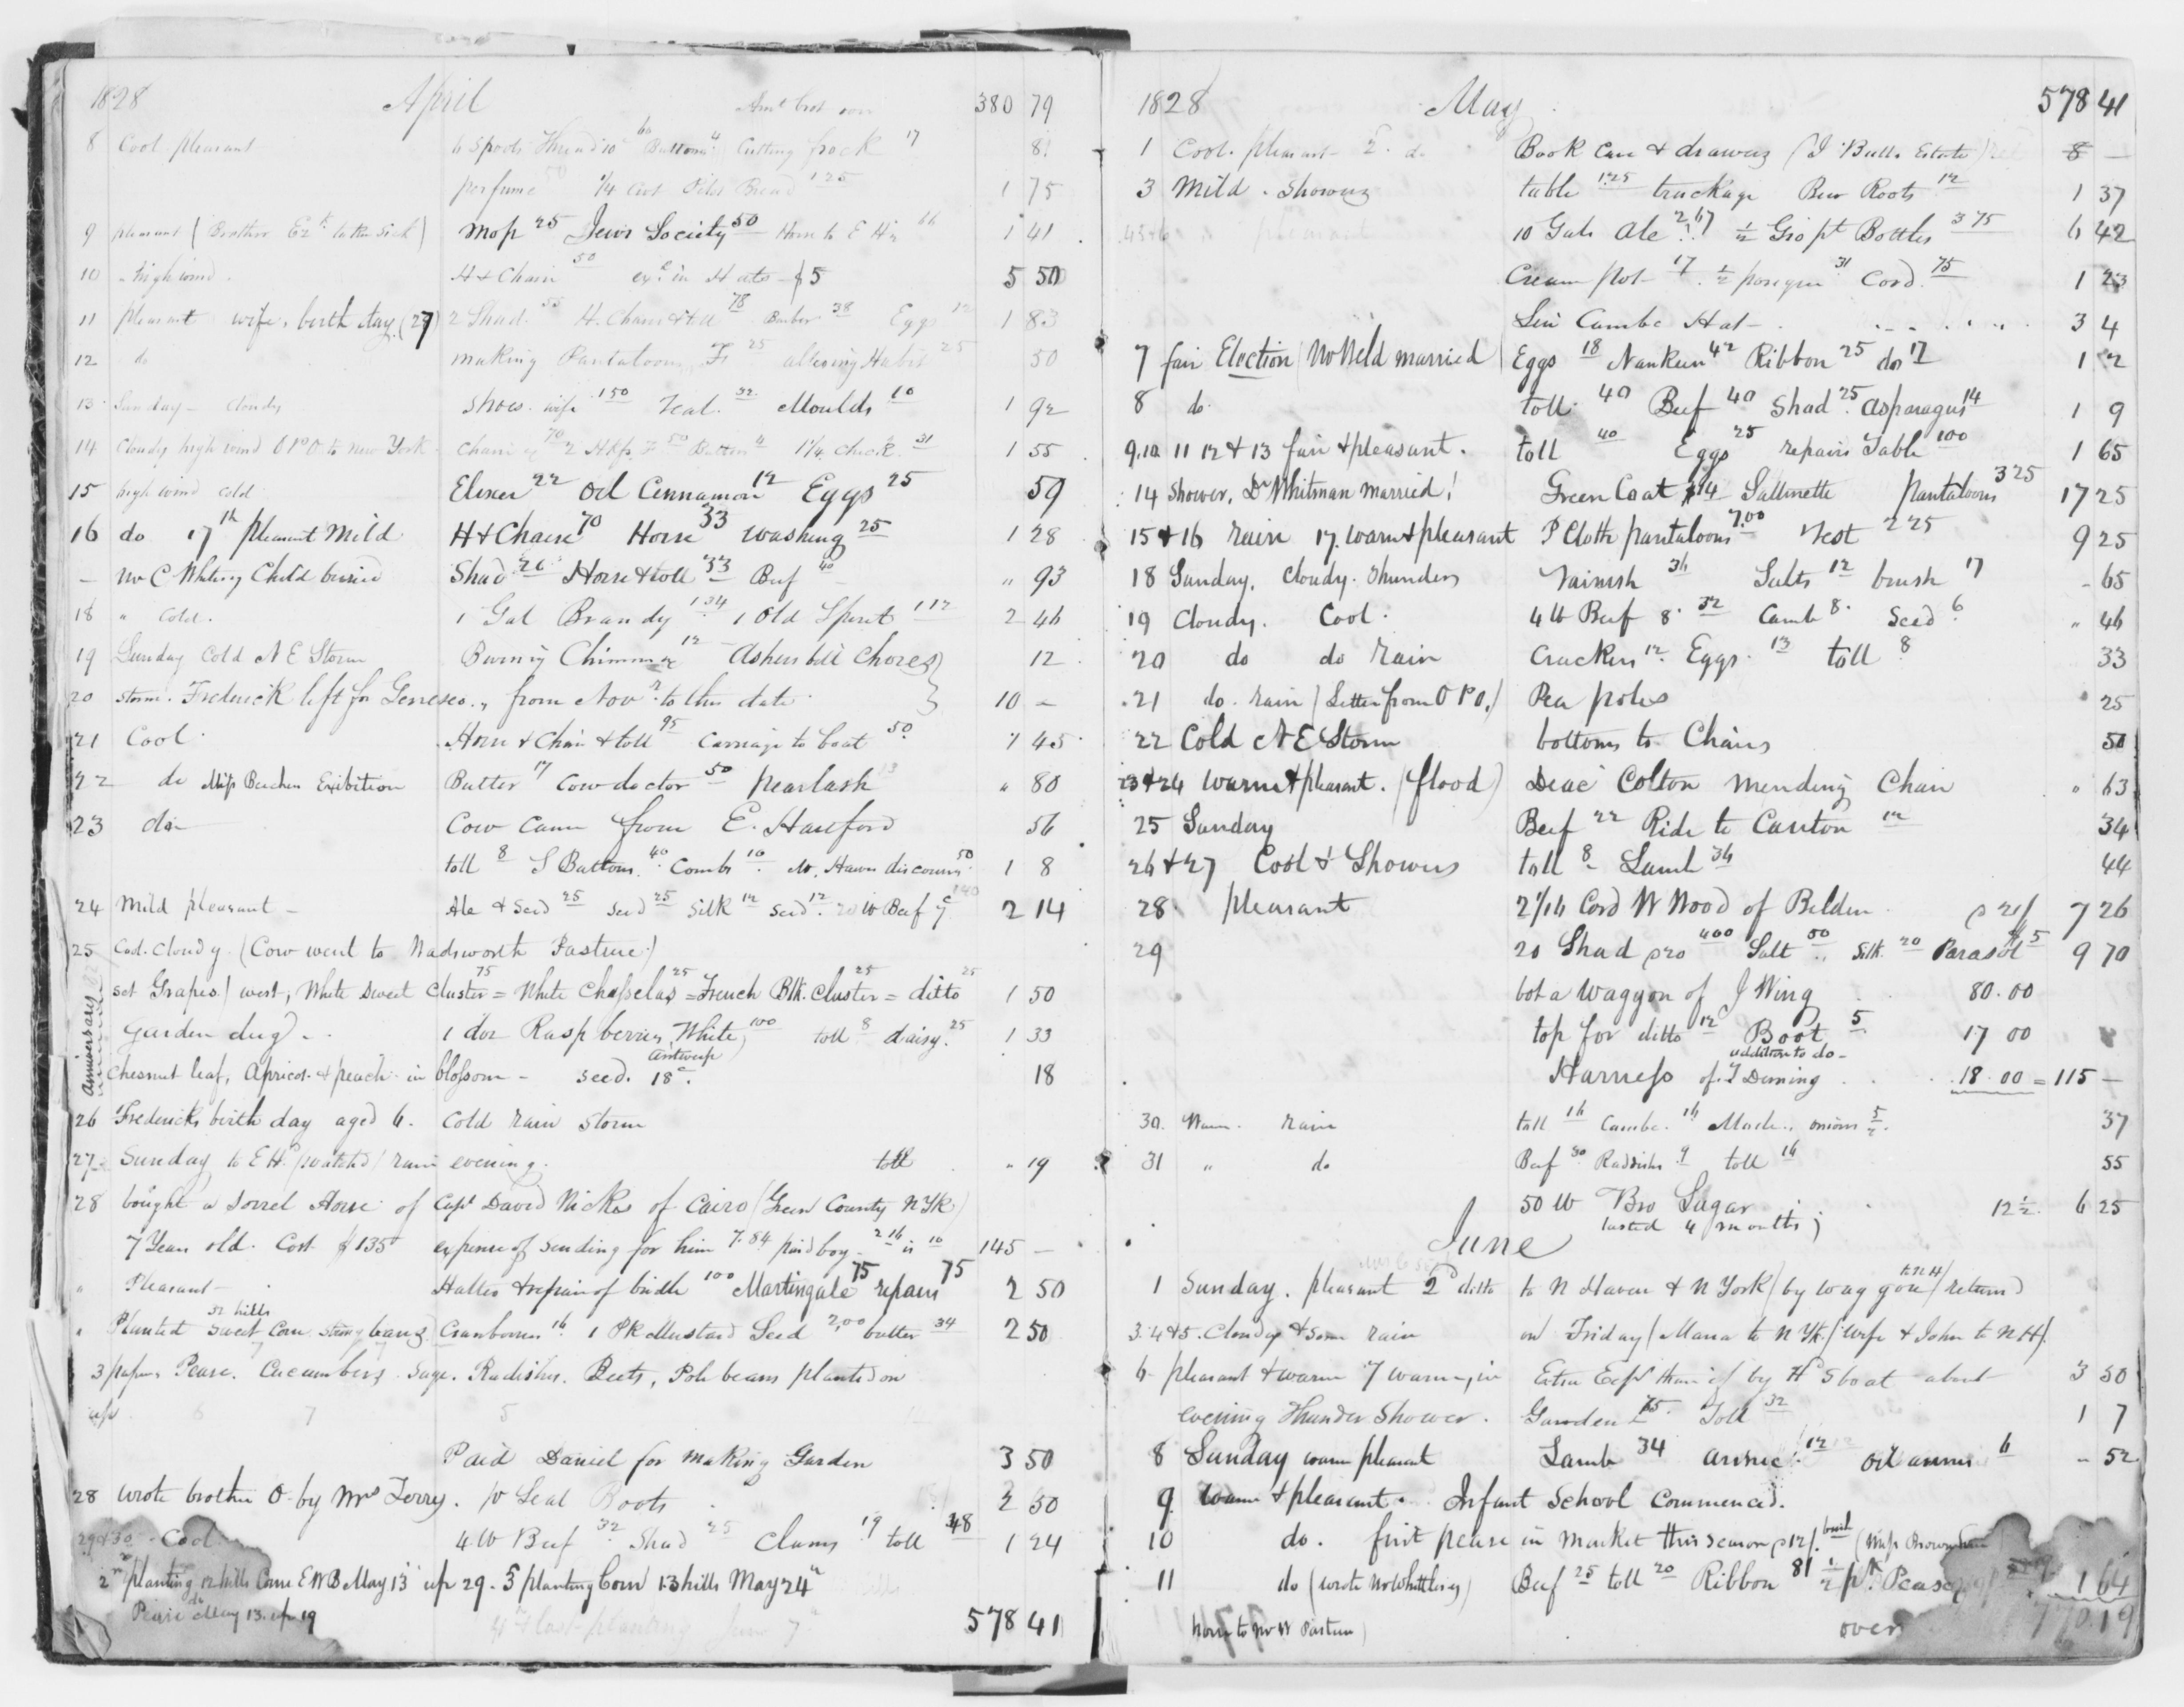 1828 April Amt brot over 380 79
8 Cool pleasant 6 Spools Thread 10 Buttons 4 Cutting frock 17 8
perfume 50 1/4 Cwt Pilot Bread 125 1 75
9 pleasant (Brother taken Sick) Mop 25 Jews Society 50 Horse to E H 66 1 41
10 " high wind H & Chaise 50 in H $5 5 50
11 pleasant wife's birth day (27) 2 Shad H. Chaise & toll 78 Barber 38 Eggs 12 1 83
12 do making Pantaloons 25 altering Habit 25 50
13 Sunday - Cloudy Shoes wife 150 Veal 32 Moulds 10 1 92
14 Cloudy high wind O P O to New York Chaise 70 2 Hkfs 50 Button 4 1 1/4 Check 31 1 55
15 high wind cold Elixer 22 Oil Cinnamon 12 Eggs 25 59
16 do 17th pleasant Mild H & Chaise 70 Horse 33 washing 25 1 28
— Mr C Whiting Child buried Shad 20 Horse & toll 33 Beef 40 " 93
18 " Cold. 1 Gal Brandy 134 1 Old Spirit 112 2 46
19 Sunday Cold N E Storm Burning Chimney 12 Ashes bill Chores 12
20 storm. Frederick left for Geneseo., from Novr to this date 10 —
21 Cool. Horse & Chaise & toll 95 Carriage to boat 50 1 45
22 do Miss Beechers Exibition Butter 17 Cow doctor 50 pearlash 13 " 80
23 do Cow Came from E. Hartford 56
toll 8 S Buttons 40 Combs 10 Mr. discount 50 1 8
24 Mild pleasant — Ale & Seed 25 Seed 25 Silk 12 Seed 12 20 lb Beef 7c 140 2 14
25 Cool. Cloudy (Cow went to Wadsworth Pasture)
set Grapes / west, White Sweet Cluster 75 = White Chasselas 25 = French Blk. Cluster 25 = ditto 25 1 50
Garden dug) 1 doz Raspberries, White 100 toll 8 daisy 25 1 33
Antwerp
Anniversary
Chesnut leaf, Apricot & peach in blossom — seed. 18c. 18
26 Fredericks birth day aged 6. Cold rain storm
27 Sunday to E H. (watched) rain evening. toll " 19
28 bought a Sorrel Horse of Capt David Nickes of Cairo (Green County N Yk)
7 Years old. Cost $135 expense of sending for him 7.84 paid boy 2 16 is 10 145 —
" Pleasant Halter & repair of bridle 100 Martingale 75 repairs 75 2 50
32 hills
" Planted Sweet Corn string beans) Cranberries 16 1 Pk Mustard Seed 2,00 butter 34 2 50
3 papers Pease. Cucumbers. Sage. Radishes. Beets, Pole beans planted on
up 6 7 5
Paid Daniel for Making Garden 3 50
28 wrote brother O by Mrs Terry. pr Seal Boots 2 50
29 & 30 Cool 4 lb Beef 32 Shad 25 Clams 19 toll 48 1 24
2nd planting 12 hills Corn E W B May 13 up 29. 3 planting Corn 13 hills May 24th
Pease do May 13. up 19
4th & last planting June 7 578 41
1828 May 578 41
1 Cool. pleasant Book Case & drawers (J Bulls Estate) 8 —
3 Mild. Showers table 125 truckage Beer Roots 12 1 37
4 5 & 6 pleasant 10 Gals Ale 267 1/2 Gro pt Bottles 375 6 42
Cream pot 17 31 Cord 75 1 23
Hat 3 4
7 fair Election (Mr Weld married Eggs 18 Nankeen 42 Ribbon 25 do 17 1 2
8 do. toll 40 Beef 40 Shad 25 Asparagus 14 1 9
9.10 11 12 & 13 fair & pleasant. toll 40 Eggs 25 repairs Table 100 1 65
14 Shower, Dr Whitman married! Green Coat $14 Sattinette Pantaloons 325 17 25
15 & 16 rain 17. warm & pleasant P Cloth pantaloons 7.00 Vest 225 9 25
18 Sunday. Cloudy. Thunders Varnish 36 Salts 12 brush 17 - 65
19 Cloudy. Cool. 4 lb Beef 8. 32 Camb 8. Seed 6 " 46
20 do do Rain Crackers 12. Eggs. 13 toll 8 33
21 do. rain (Letter from O P O.) Pea poles 25
22 Cold N E Storm bottoms to Chairs 50
23 & 24 warm & pleasant. (flood) Deac Colton mending Chair " 63
25 Sunday Beef 22 Ride to Canton 12 34
26 & 27 Cool & Showers toll 8 Lamb 36 44
28 pleasant 2 1/16 Cord W Wood of Belden 21/ 7 26
29 20 Shad 400 Salt 50 Silk 20 Parasol 5 9 70
bot a Waggon of J Wing 80.00
top for ditto 12 Boot 5 17 00
addition to do
Harness of J Deming 18.00 = 115 —
30. Warm. rain toll 16 16 onions 5 37
31 " do Beef 30 Raddishes 9 toll 16 55
50 lb Bro Sugar 12 1/2 6 25
lasted 4 months;
June
1 Sunday. pleasant 2d ditto to N Haven & N York) by waggon (to N H) returned
3. 4 & 5. Cloudy & some rain on Friday (Maria to N Yk.) wife & John to N H).
6 pleasant & warm 7 warm, in Extra Exps than if by Hd S boat about 3 50
evening Thunder Shower. Garden 75. Toll 32 1 7
8 Sunday warm pleasant Lamb 34 12 oil 6 - 52
9 Warm & pleasant. Infant School Commenced.
10 do. first pease in Market this season 12/. bush (Miss
11 do (wrote Mr Whittlesey) Beef 25 toll 20 Ribbon 81 1/2 pk Pease 1 64
horse to Mr W Pasture) over 770.19